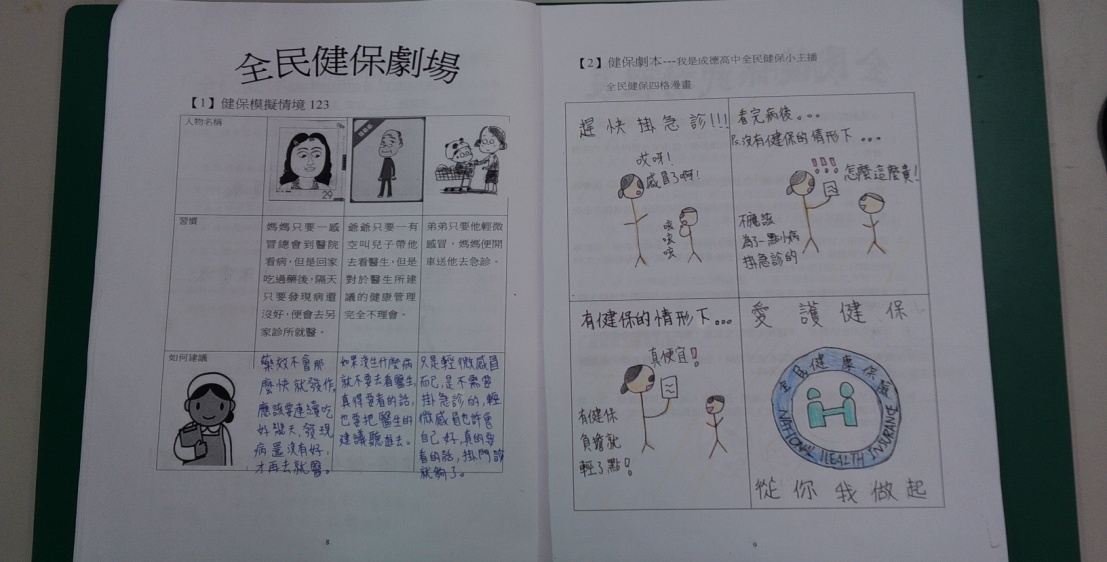 全民健保劇場
【1】健保模擬情境 123
人物名稱
29
習慣
媽媽只要一感
冒總會到醫院
看病,但是回家
吃過藥後,隔天
只要發現病還
沒好,便會去另
家診所就醫。
爺爺只要一有
空叫兒子帶他
去看醫生,但是
對於醫生所建
議的健康管理
完全不理會。
弟弟只要他輕微
感冒,媽媽便開
車送他去急診。
如何建議
藥效不會那
麼快就發作,
應該要連續吃
好幾天,發現
病還沒有好,
才再去就醫。
如果沒生什麼病
就不要去看醫生,
真得要看的話,
也要把醫生的
建議聽進去。
只是輕微感冒
而已,是不需要
掛急診的,輕
微感冒也許會
自己好,真的要
看的話,掛門診
就夠了。
8
【2】健保劇本---我是成德高中全民健保小主播
全民健保四格漫畫
趕快掛急診!!!
哎呀!
感冒了啊!
咳
咳
咳
看完病後。。。
在沒有健保的情形下。。。
!!!
怎麼這麼貴!
不應該
為了一點小病
掛急診的
有健保的情形下。。。
真便宜!
有健保
負擔就
輕了點!
愛護健保
全民健康保險
NATIONAL HEALTH INSURANCE
從你我做起
9